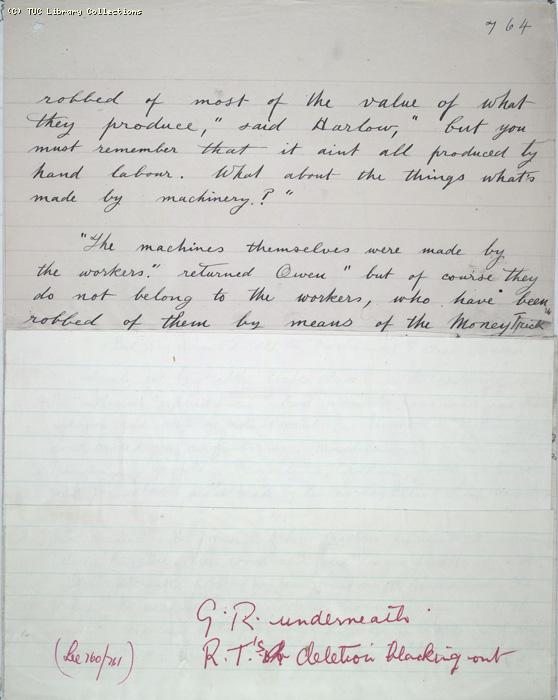 (C) TUC Library Collections
764
robbed of most of the value of what
they produce," said Harlow, "but you
must remember that it aint all produced by
hand labour. What about the things what's
made by machinery.?"
"The machines themselves were made by
the workers." returned Owen "but of course they
do not belong to the workers, who have been
robbed of them by means of the Money Trick"
G.R. underneath.
(See 760/761) R.T.'s deletion blacking out